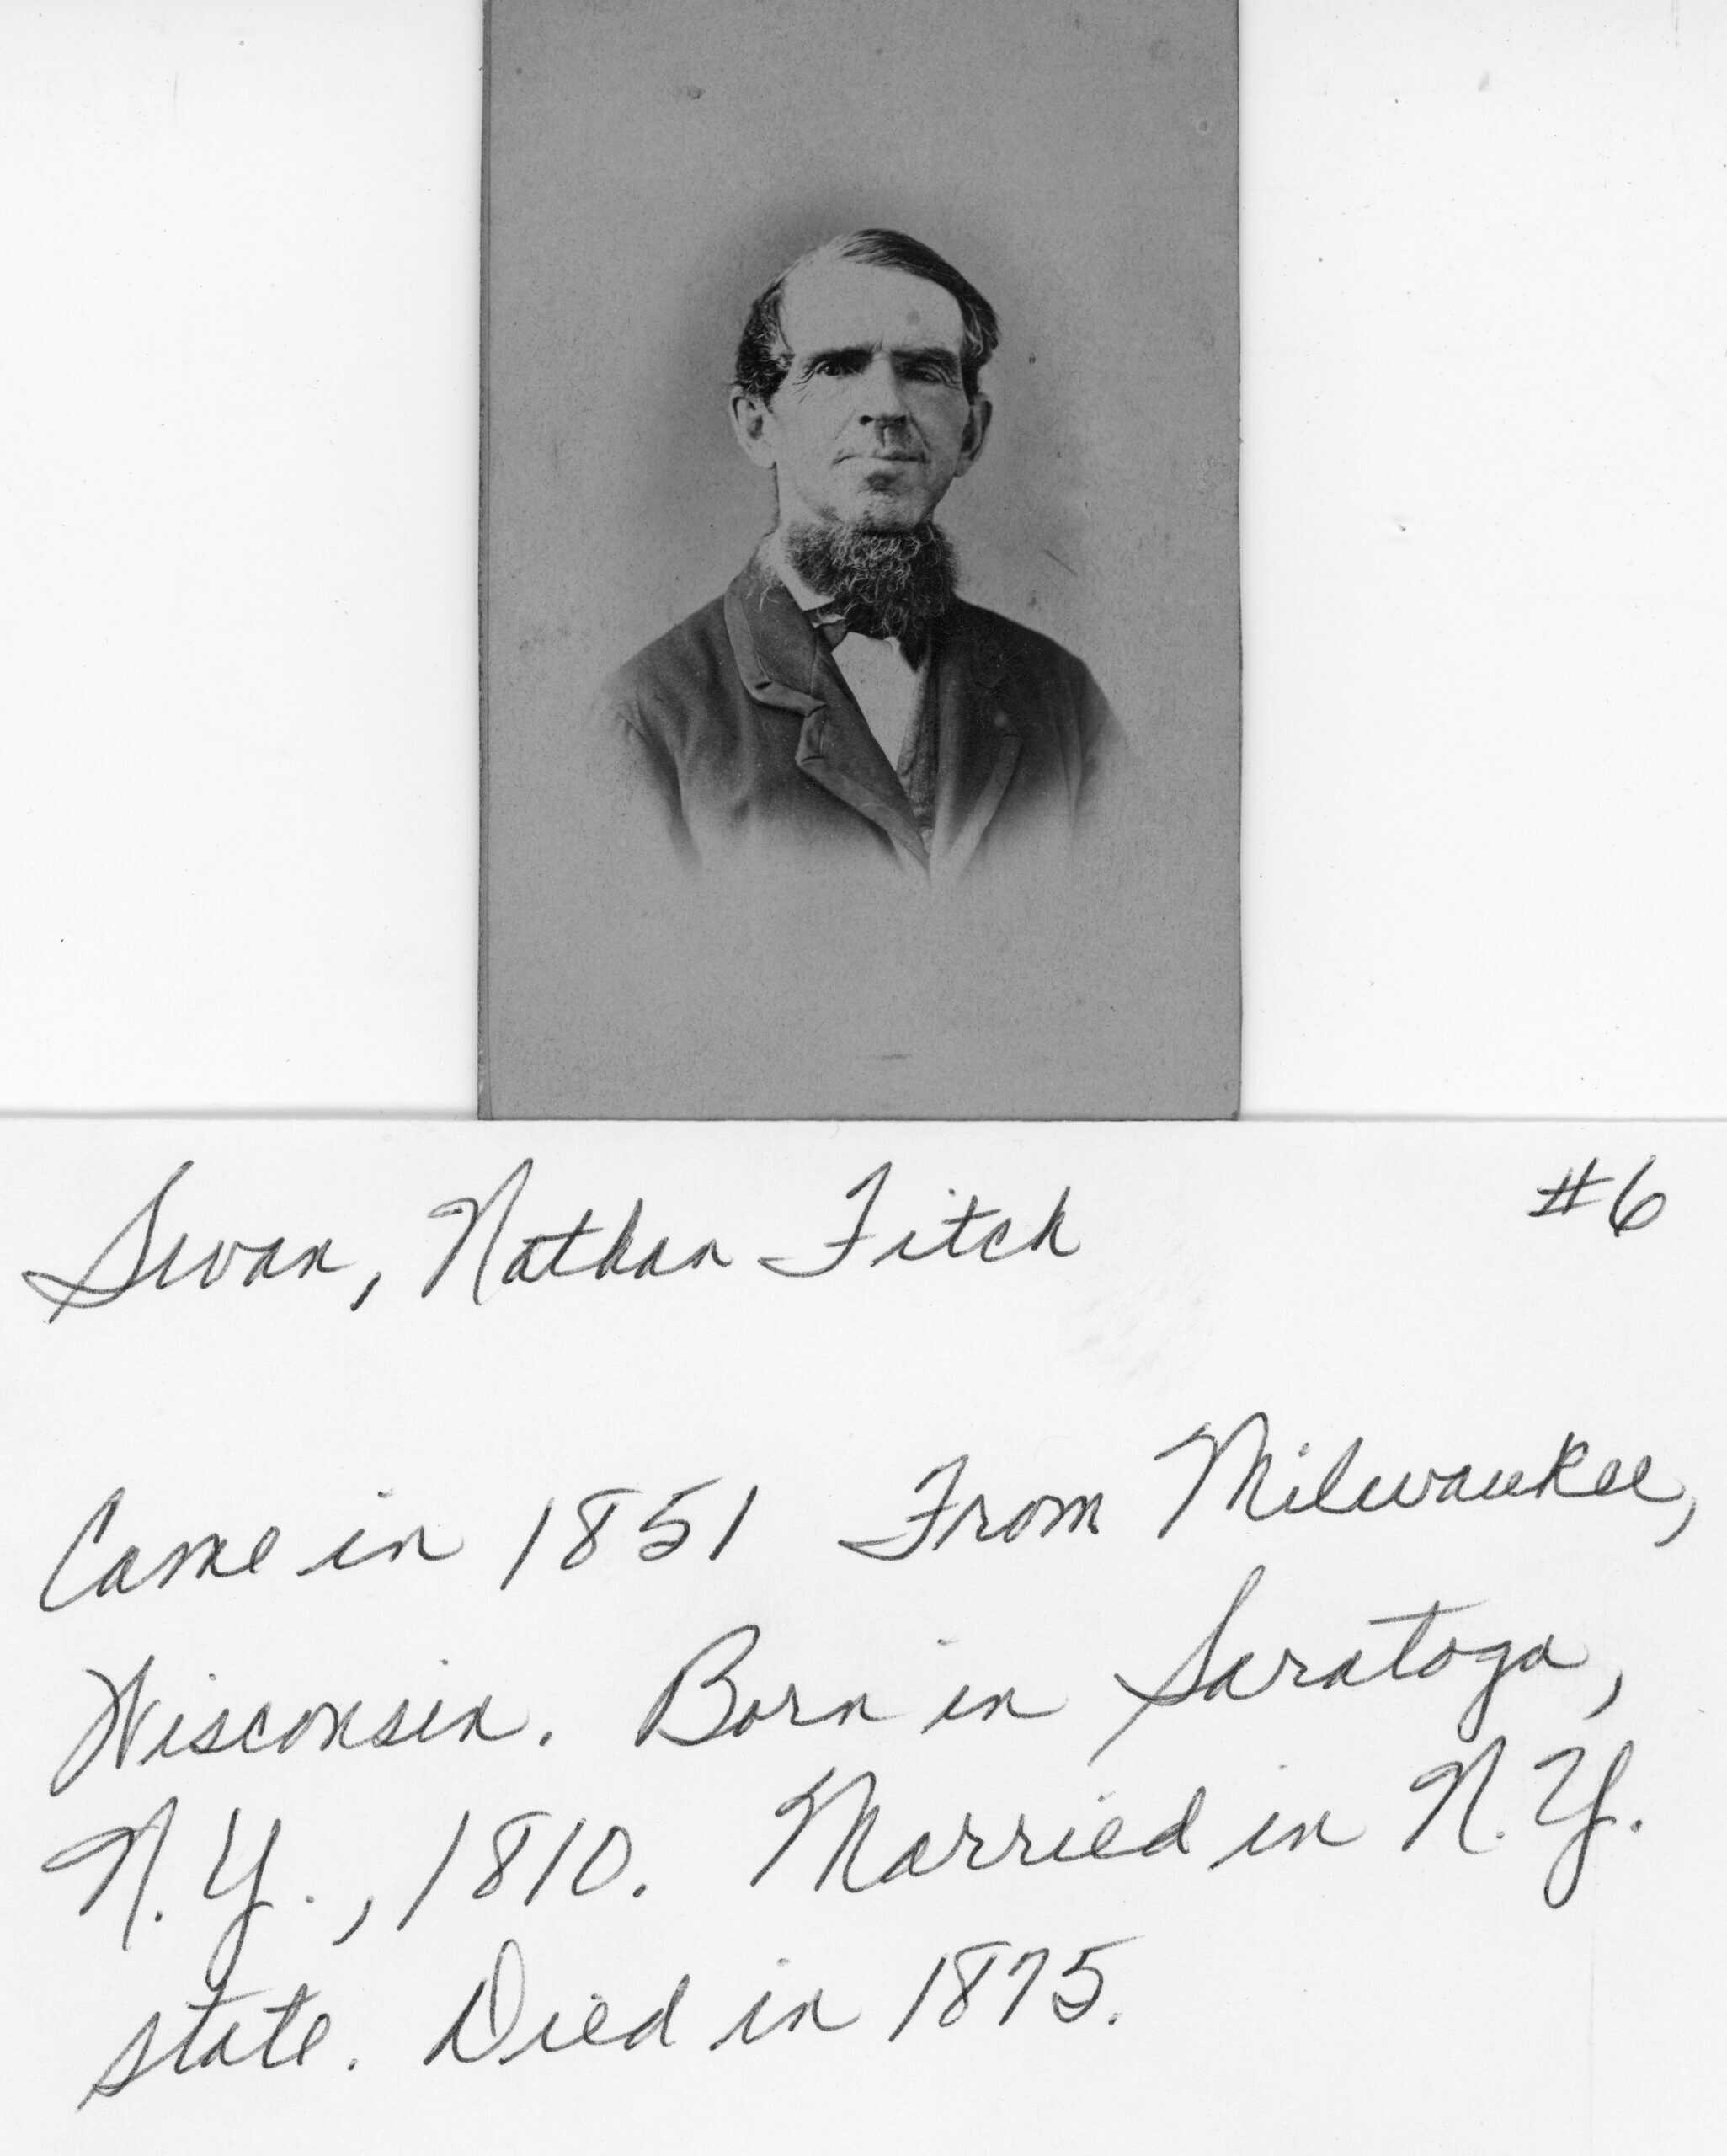 Swan, Nathan Fitch #6
Came in 1851 From Milwaukee,
Wisconsin. Born in Saratoga,
N.Y., 1810. Married in N.Y.
state. Died in 1875.